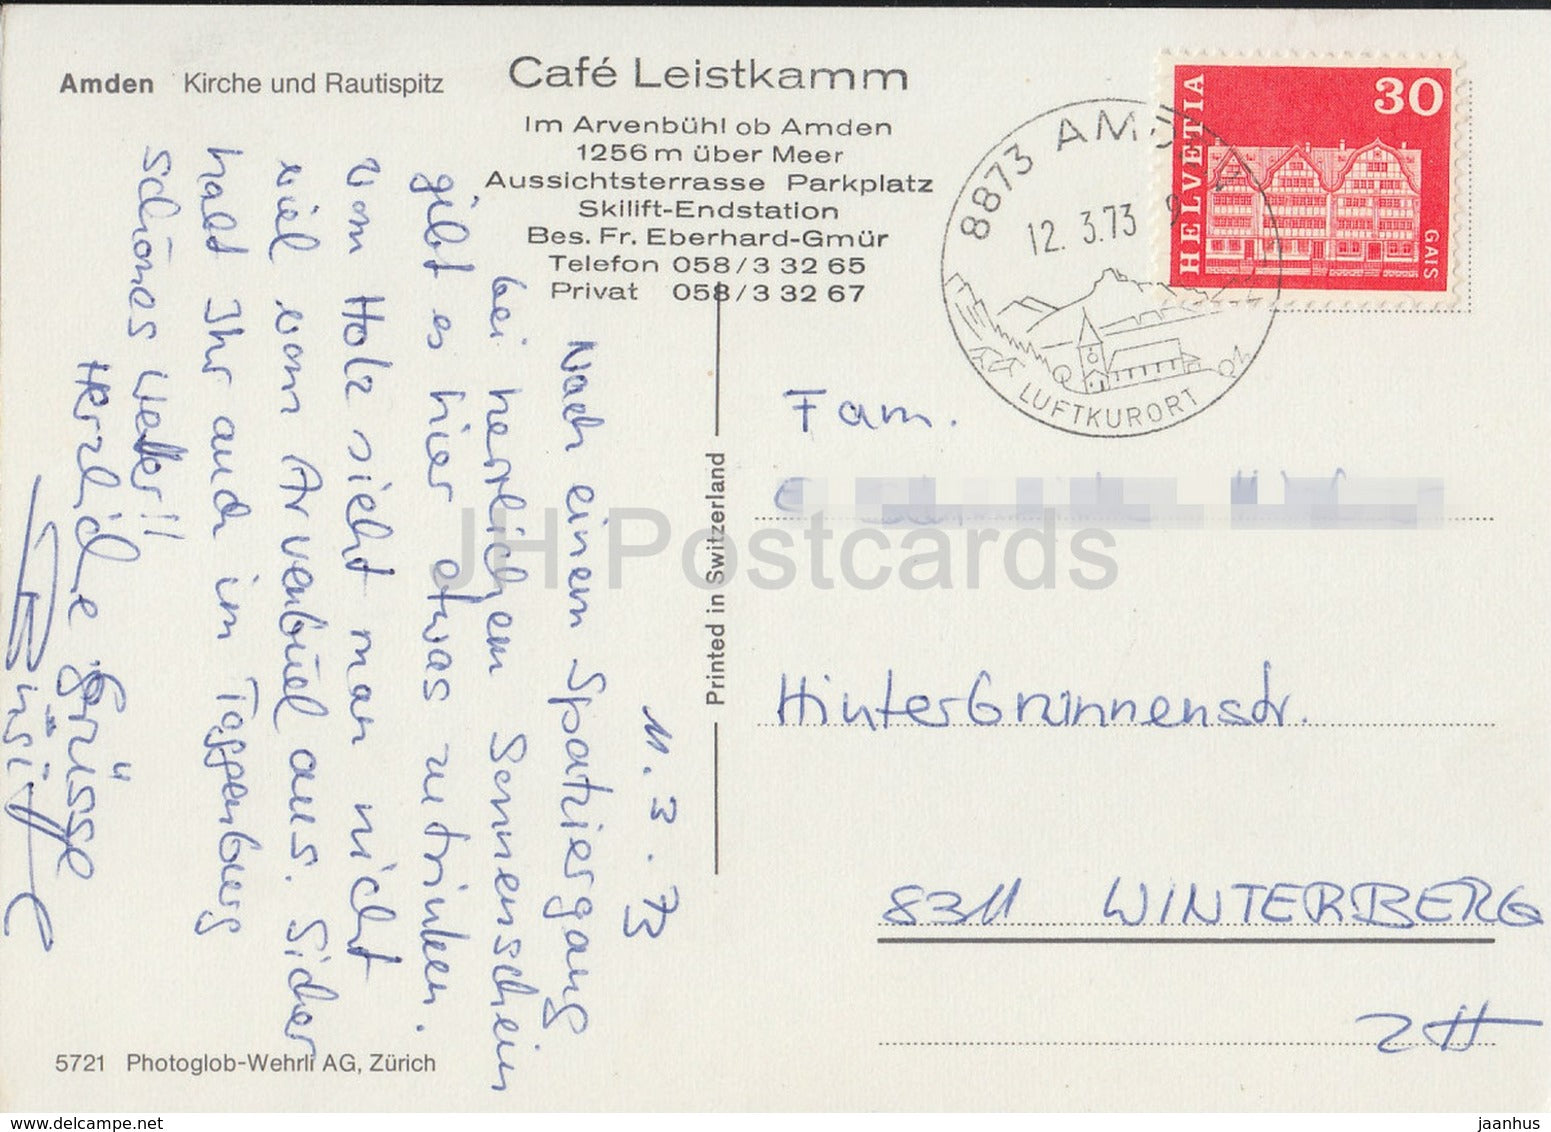 Amden Kirche und Rautispitz
Café Leistkamm
Im Arvenbühl ob Amden
1256 m über Meer
Aussichtsterrasse Parkplatz
Skilift-Endstation
Bes. Fr. Eberhard-Gmür
Telefon 058/3 32 65
Privat 058/3 32 67
11. 3. 73
Nach einem Spaziergang
bei herrlichem Sonnenschein
gibt es hier etwas zu trinken.
vom Holz sieht man nicht
viel vom Arvenbüel aus. Sicher
habt Ihr auch im Toggenburg
schönes Wetter!!
Herzliche Grüsse
5721 Photoglob-Wehrli AG, Zürich
Printed in Switzerland
8873 AMDEN
12. 3. 73
LUFTKURORT
HELVETIA
30
GAIS
Fam.
Hinterbrunnenstr.
8311 WINTERBERG
ZH
JH Postcards
www.delcampe.net
jaanhus